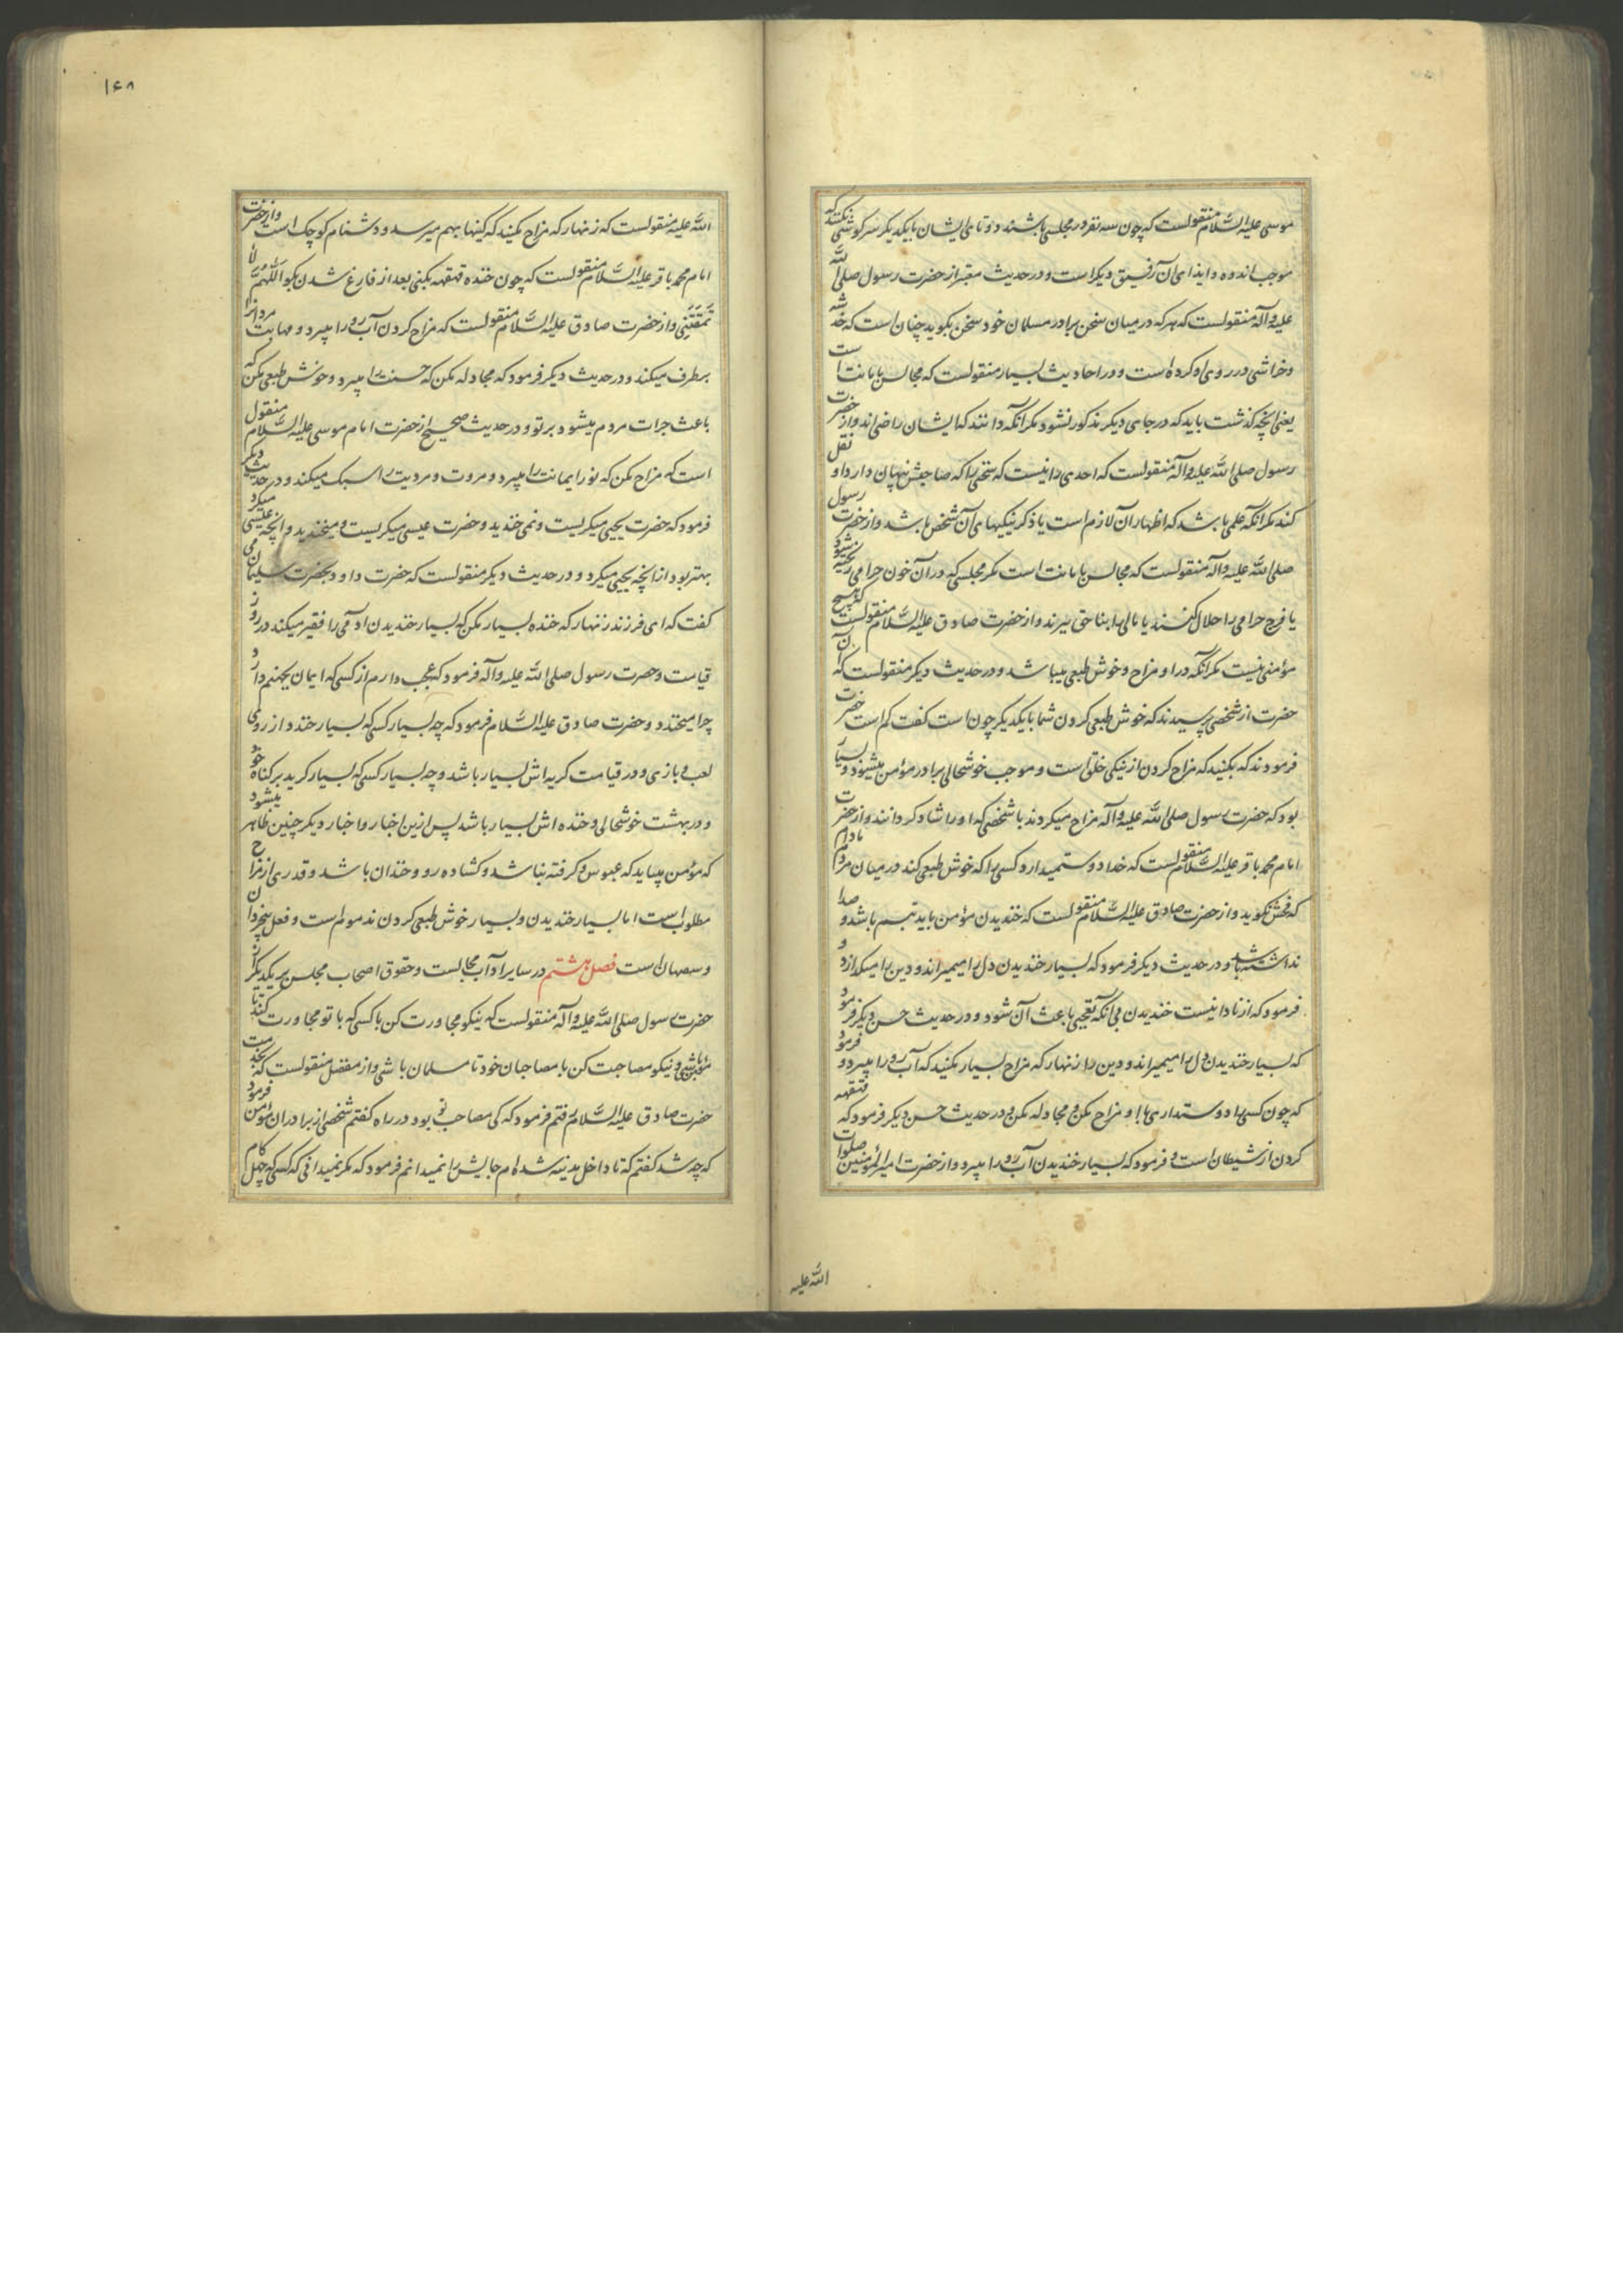 موسی علیه السّلام منقولست که چون سه نفر در مجلسی باشند دو تای ایشان با یکدیگر سرکوشی نکنند که
موجب اندوه و ایذای آن رفیق دیکر است و در حدیث معتبر از حضرت رسول صلی الله
علیه و آله منقولست که هر که در میان سخن برادر مسلمان خود سخن بکوید چنان است که خدشه
و خراشی در روی او کرده است و در احادیث بسیار منقولست که مجالس با مانت است
یعنی آنچه کذشت باید که در جای دیکر مذکور نشود مکر آنکه دانند که ایشان راضی اند و از حضرت
رسول صلی الله علیه و آله منقولست که احدی را نیست که سخنی را که صاحبش پنهان دارد او نقل
کند مکر آنکه علمی باشد که اظهار آن لازم است یا ذکر نیکیهای آن شخص باشد و از حضرت رسول
صلی الله علیه و آله منقولست که مجالس با مانت است مکر مجلسی که در آن خون حرامی ریخته شود
یا فرج حرامی را حلال کنند یا مالی را بنا حق ببرند و از حضرت صادق علیه السّلام منقولست که هیچ
مؤمنی نیست مکر آنکه در او مزاح و خوش طبعی میباشد و در حدیث دیکر منقولست که آن
حضرت از شخصی پرسیدند که خوش طبعی کردن شما با یکدیکر چون است کفت کم است حضرت
فرمودند که بکنید که مزاح کردن از نیکی خلق است و موجب خوشحالی برادر مؤمن میشود و بسیار
بود که حضرت رسول صلی الله علیه و آله مزاح میکردند با شخصی که او را شاد کردانند و از حضرت
امام محمد باقر علیه السّلام منقولست که خدا دوست میدارد کسی را که خوش طبعی کند در میان مردم مادام
که فحش نکوید و از حضرت صادق علیه السّلام منقولست که خندیدن مؤمن باید تبسم باشد و صدا
نداشته باشد و در حدیث دیکر فرمود که بسیار خندیدن دل را میمیراند و دین را میکدازد و
فرمود که از نادانیست خندیدن بی آنکه تعجبی باعث آن شود و در حدیث حسن دیکر فرمود
که بسیار خندیدن دل را میمیراند و دین را زنهار که مزاح بسیار مکنید که آب رو را میبرد و فرمود
که چون کسی را دوست داری با او مزاح مکن و مجادله مکن و در حدیث حسن دیکر فرمود که قهقهه
کردن از شیطان است و فرمود که بسیار خندیدن آب رو را میبرد و از حضرت امیر المؤمنین صلوات
الله علیه
۱۶۸
الله علیه منقولست که زنهار که مزاح مکنید که کینها بهم میرسد و دشنام کوچک است و از حضرت
امام محمد باقر علیه السّلام منقولست که چون خنده قهقهه بکنی بعد از فارغ شدن بکو اللّهمّ لا
تمقتنی و از حضرت صادق علیه السّلام منقولست که مزاح کردن آب رو را میبرد و مهابت مردانرا
برطرف میکند و در حدیث دیکر فرمود که مجادله مکن که حسنت را میبرد و خوش طبعی مکن که
باعث جرات مردم میشود بر تو و در حدیث صحیح از حضرت امام موسی علیه السّلام منقول
است که مزاح مکن که نور ایمانت را میبرد و مروت و مردیت را سبک میکند و در حدیث دیکر
فرمود که حضرت یحیی میکریست و نمی خندید و حضرت عیسی میکریست و میخندید و آنچه عیسی میکرد
بهتر بود از آنچه یحیی میکرد و در حدیث دیکر منقولست که حضرت داود بحضرت سلیمان می
کفت که ای فرزند زنهار که خنده بسیار مکن که بسیار خندیدن آدمی را فقیر میکند در روز
قیامت و حضرت رسول صلی الله علیه و آله فرمود که عجب دارم از کسی که ایمان بجهنم دارد
چرا میخندد و حضرت صادق علیه السّلام فرمود که چه بسیار کسی که بسیار خندد از روی
لعب و بازی و در قیامت کریه اش بسیار باشد و چه بسیار کسی که بسیار کرید بر کناه خود
و در بهشت خوشحالی و خنده اش بسیار باشد پس ازین اخبار و اخبار دیکر چنین ظاهر میشود
که مؤمن میباید که عبوس و کرفته نباشد و کشاده رو و خندان باشد و قدری از مزاح
مطلوب است اما بسیار خندیدن و بسیار خوش طبعی کردن مذموم است و فعل بیخردان
و سفیهان است فصل هشتم در سایر آداب مجالست و حقوق اصحاب مجلس بر یکدیکر از
حضرت رسول صلی الله علیه و آله منقولست که نیکو مجاورت کن با کسی که با تو مجاورت کند تا
مؤمن باشی و نیکو مصاحبت کن با مصاحبان خود تا مسلمان باشی و از مفضل منقولست که بخدمت
حضرت صادق علیه السّلام رفتم فرمود که کی مصاحب تو بود در راه کفتم شخصی از برادران مؤمن فرمود
که چه شد کفتم که تا داخل مدینه شده ام جایش را نمیدانم فرمود که مکر نمیدانی که کسی که چهل کام